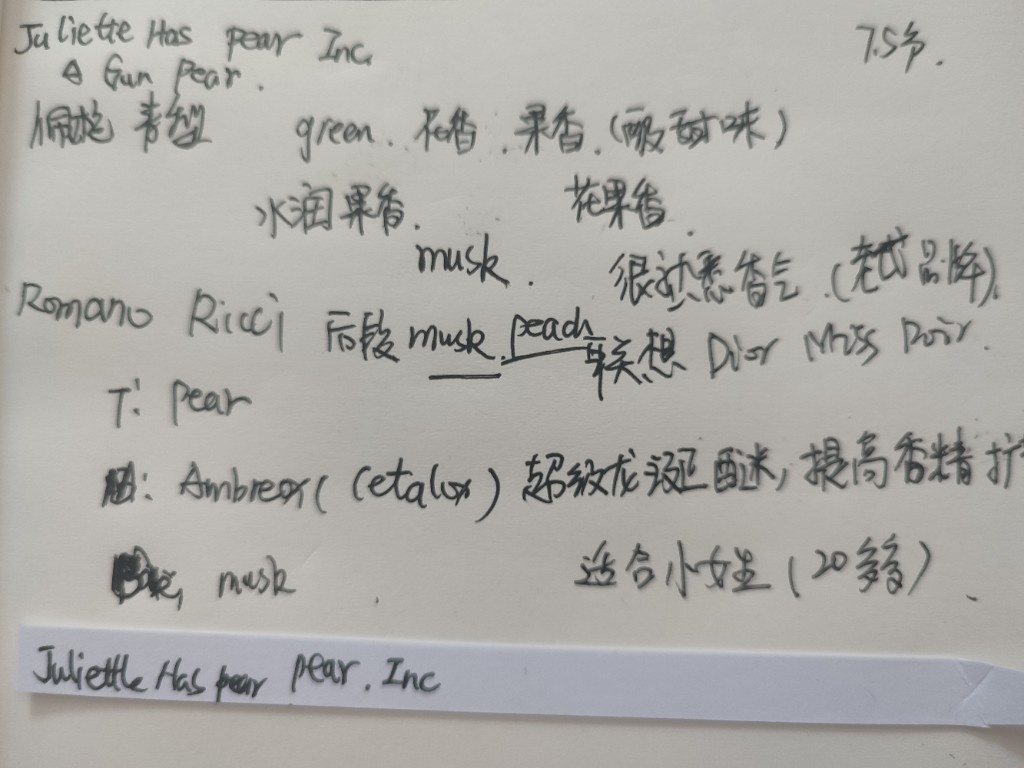 Juliette Has pear Inc. 7.5分.
a Gun Pear.
青型 green. 花香. 果香. (酸甜味)
水润果香. 花果香.
musk. 很熟悉香气. (老式品牌).
Romano Ricci 后段 musk. peach 联想 Dior Miss Doir.
T: pear
Ambreox (Cetalox) 超级龙涎醚, 提高香精扩
musk 适合小女生 (20多岁).
Juliettle Has pear pear. Inc